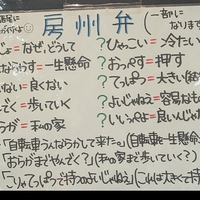 房州弁 (一部に
なります
じょ=なぜ、どうして ?ひゃっこい=冷たい
ならかす=一生懸命 ?おっぺす=押す
ない=良くない ?てっぽう=大きい
でく=歩いていく ?よいじゃねぇ=容易なも
らが=私の家 ?いいっぺぇ=良いんじ
「自転車うんならかして来た。」(自転車を一生懸
「おらがまであんでく?」(私の家まで歩いていく?)
「こりゃてっぽうで持つのよいじゃねぇ」(これは大きくて持